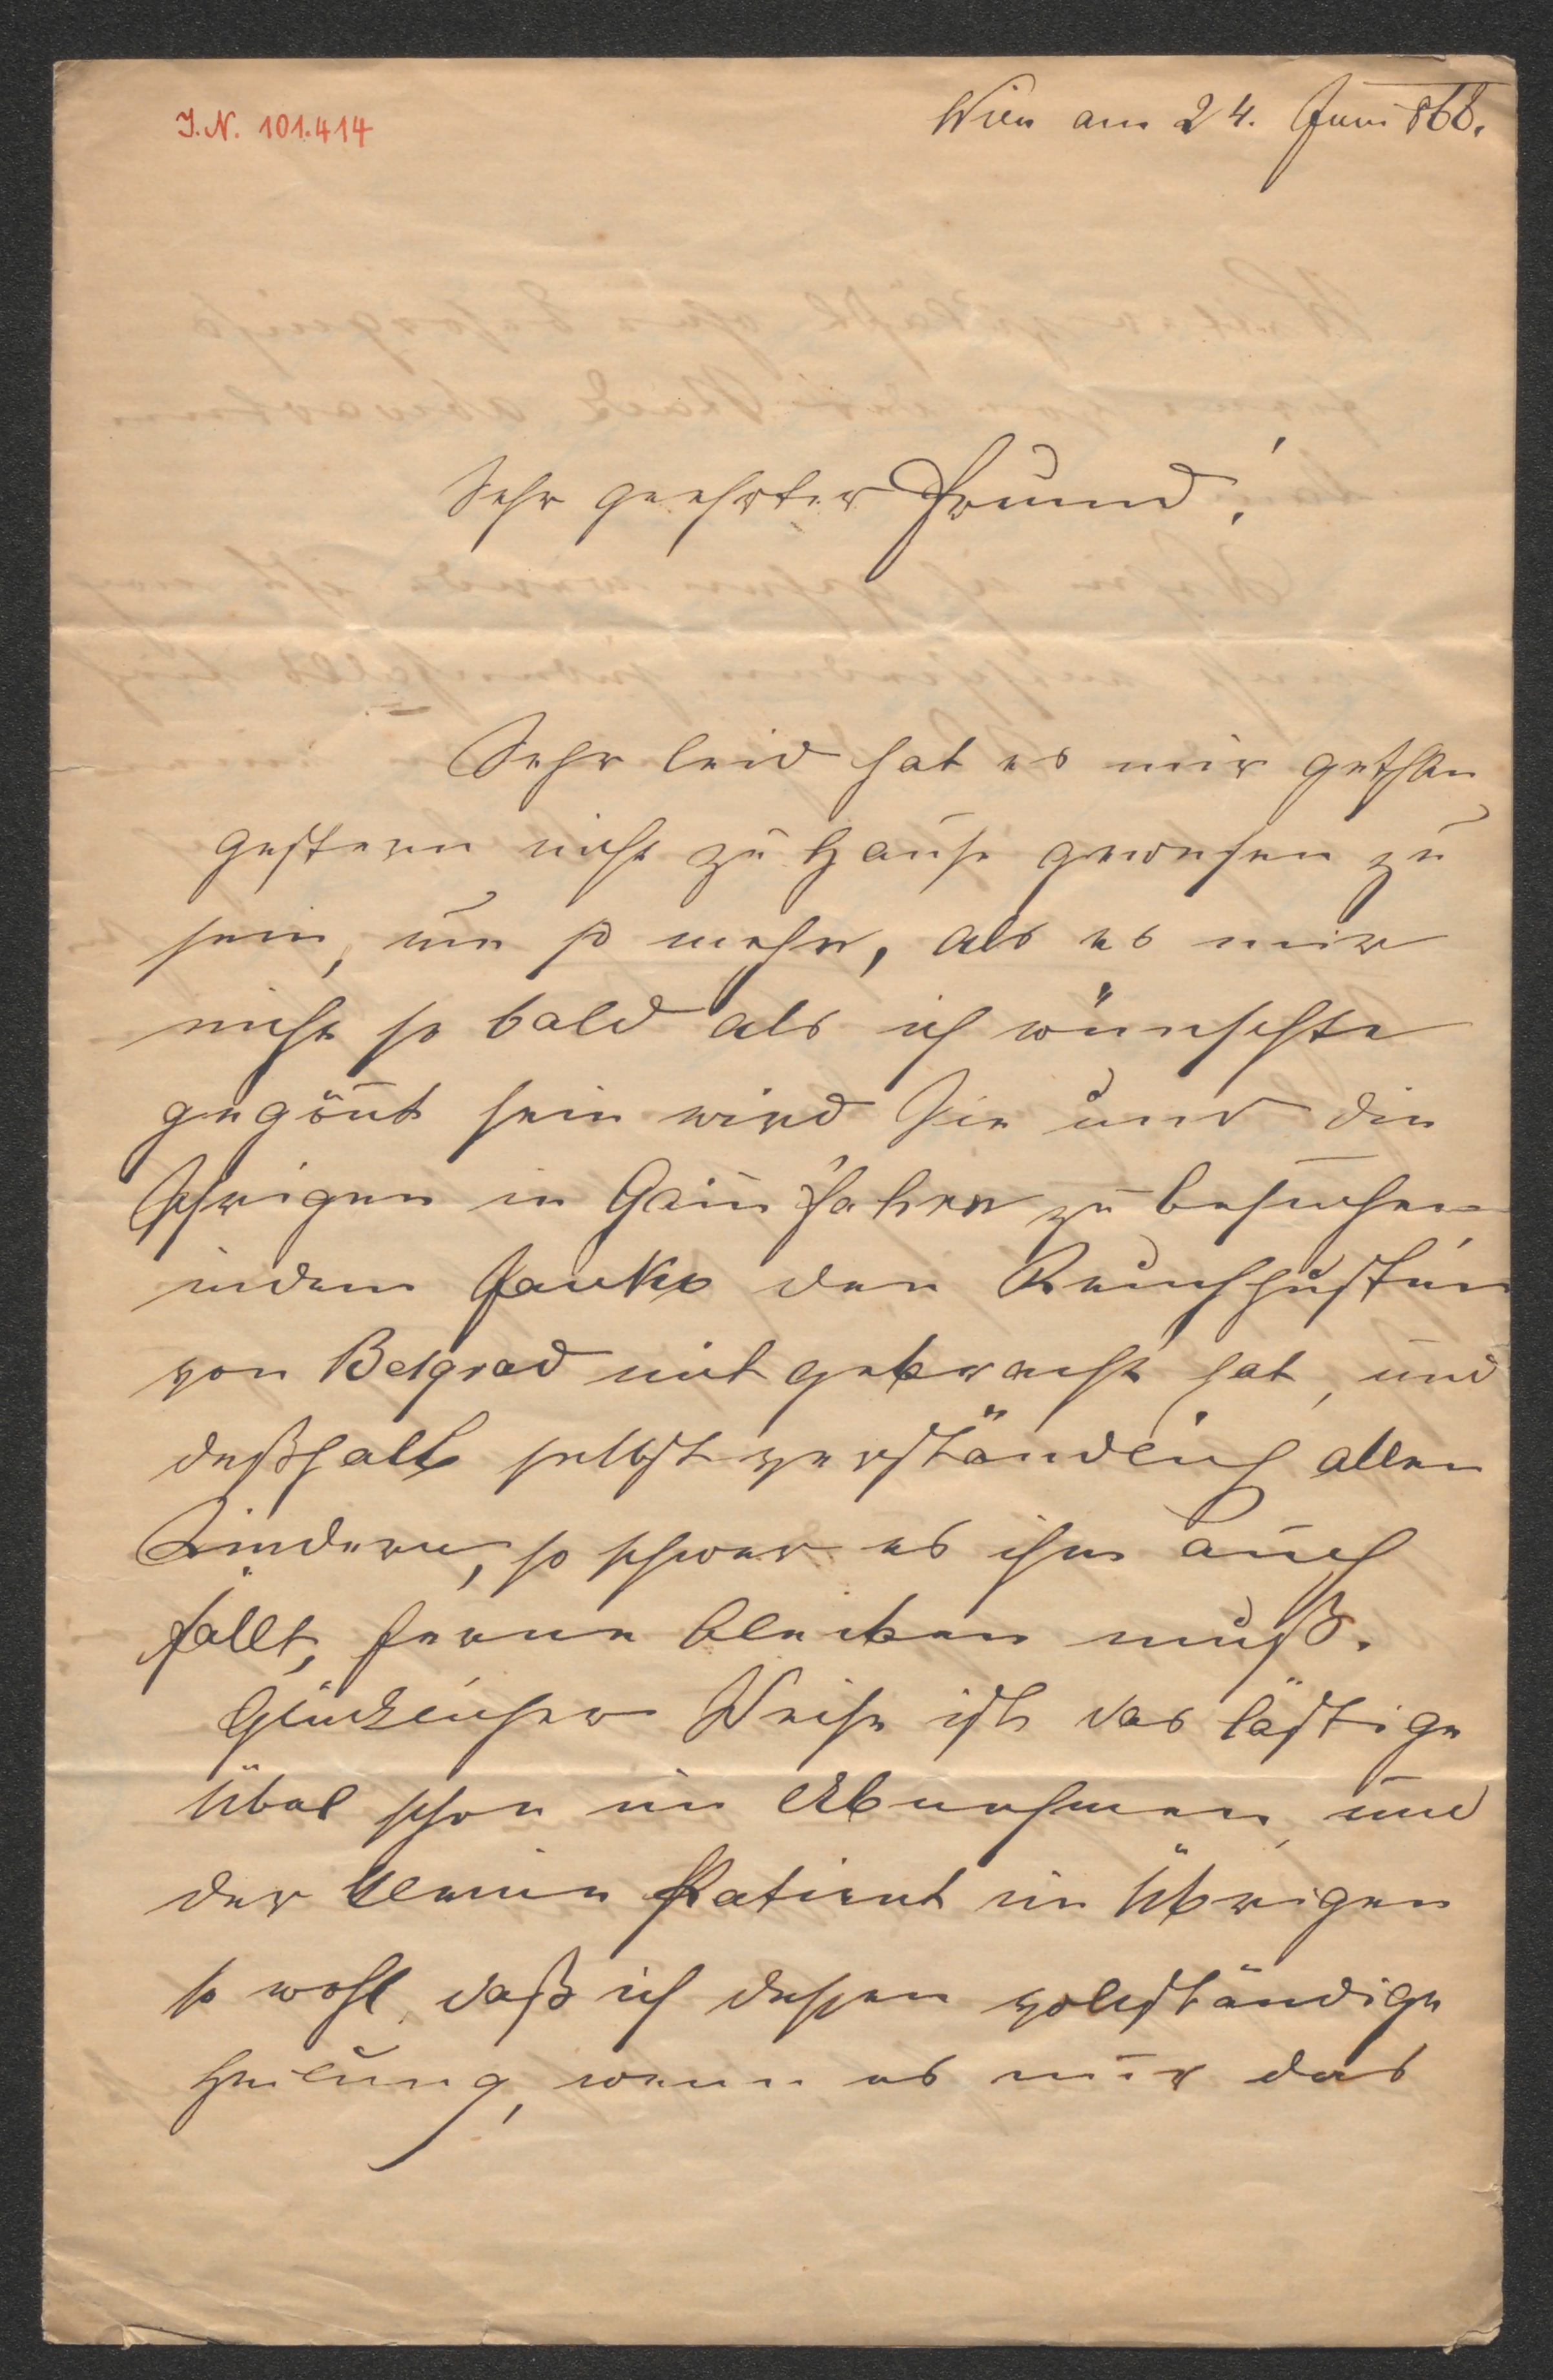 I.N. 101.414
Wien am 24. Juni 868.
Sehr geehrter Freund!
Sehr leid hat es mir gethan
gestern nicht zu Hause gewesen zu
sein, um so mehr, als es mir
nicht so bald als ich wünschte
gegönt sein wird Sie und die
Ihrigen in Gainfahrn zu besuchen
indem Janko den Keuchhusten
von Belgrad mitgebracht hat, und
deßhalb selbstverständlich allen
Kindern, so schwer es ihm auch
fällt, ferne bleiben muß.
Glücklicher Weise ist das lästige
Übel schon im Abnehmen, und
der kleine Patient im Übrigen
so wohl, daß ich dessen vollständige
Heilung, wenn es nur das